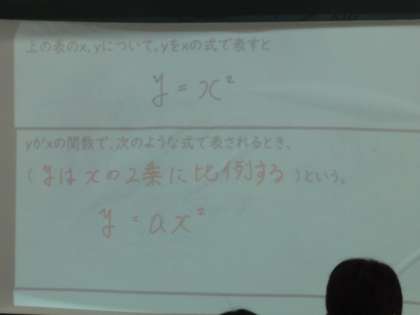 上の表のx,yについて、yをxの式で表すと
y = x²
yがxの関数で、次のような式で表されるとき、
(yはxの2乗に比例する)という。
y = ax²